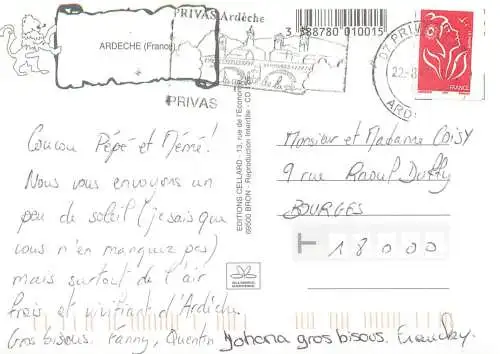 PRIVAS Ardèche
ARDECHE (France)
PRIVAS
3 388780 010015
07 PRIV
22-8
ARD
FRANCE
Coucou Pépé et Mémé!
Nous vous envoyons un
peu de soleil (je sais que
vous n'en manquez pas)
mais surtout de l'air
frais et vivifiant d'Ardèche.
Gros bisous. Fanny, Quentin Johana gros bisous.
EDITIONS CELLARD - 13, rue de l'Economie
69500 BRON - Reproduction Interdite - CD
Monsieur et Madame COISY
9 rue Raoul Duffy
BOURGES
18000